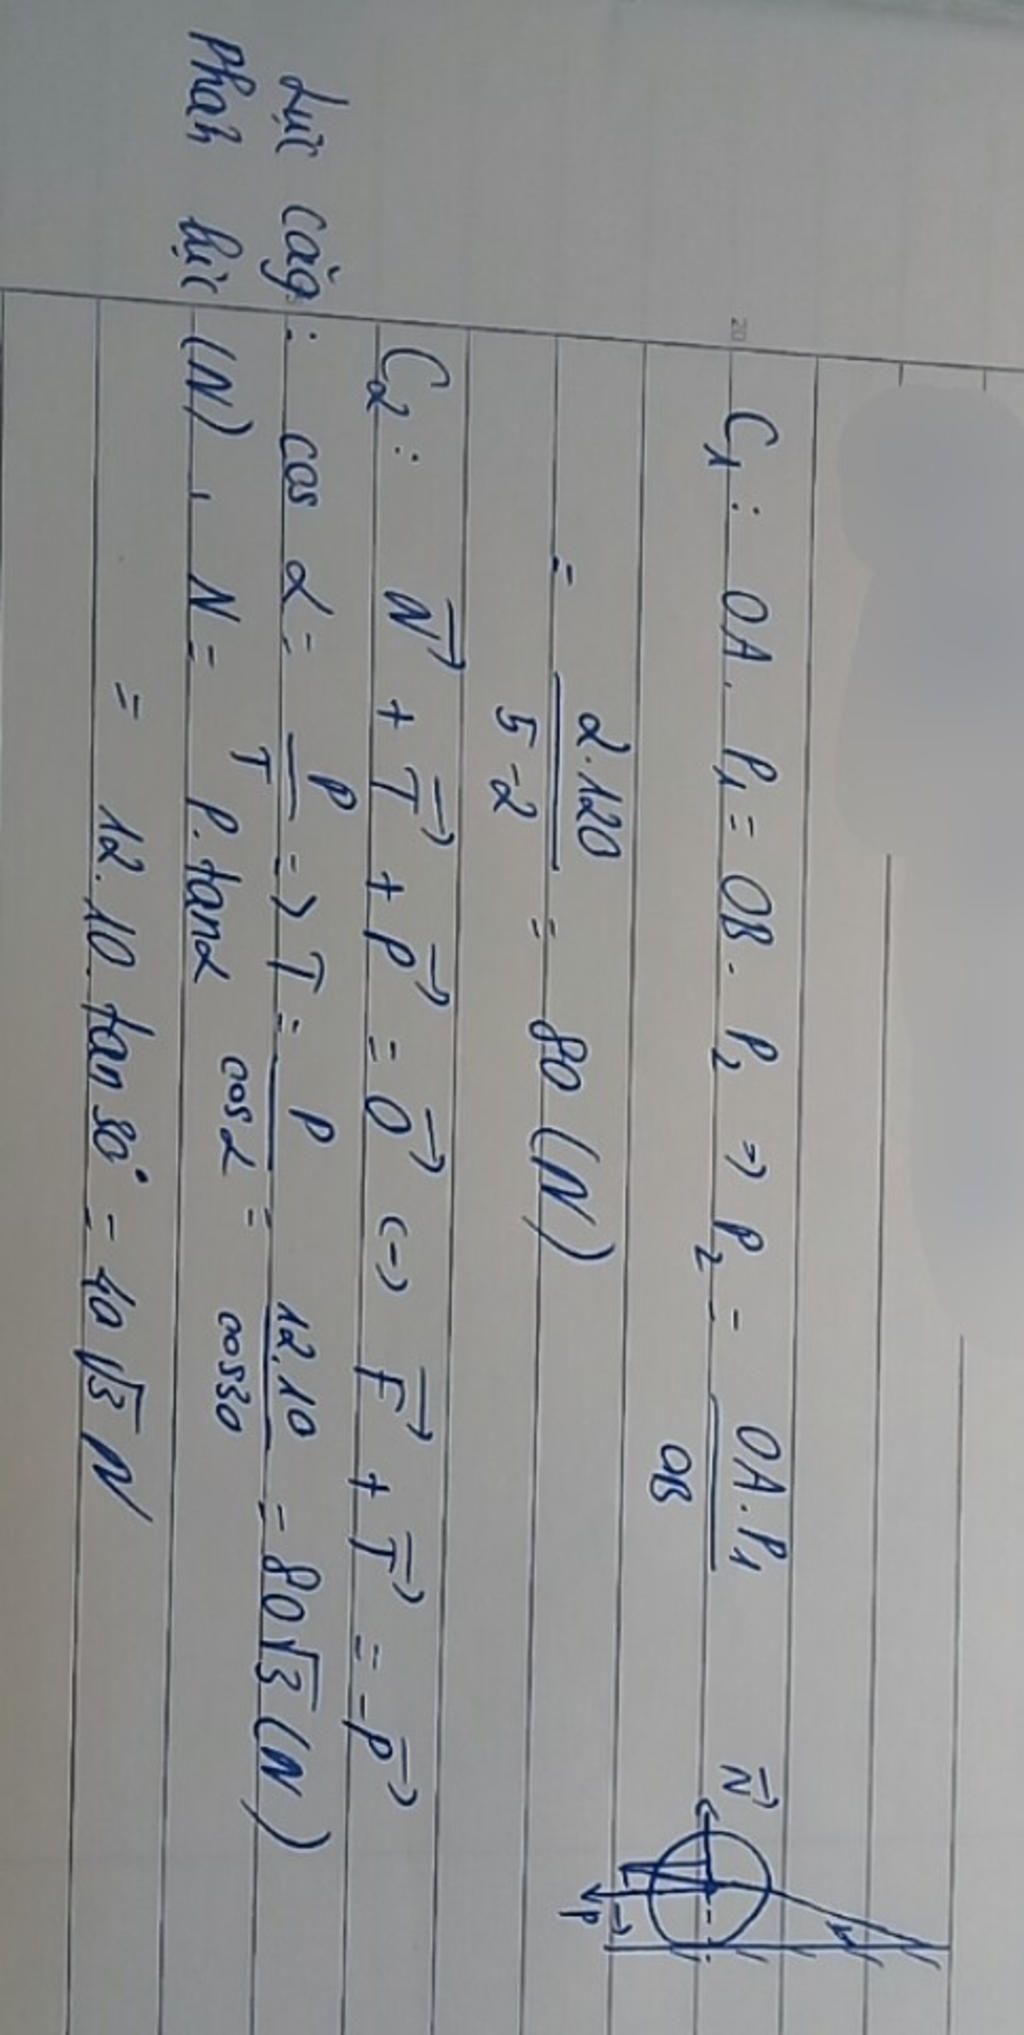 20
C₁: OA. P₁ = OB. P₂ => P₂ = OA.P₁ / OB
= 2.120 / 5-2 = 80 (N)
N→
P→
C₂: N→ + T→ + P→ = O→ <-> F→ + T→ = -P→
Lực căg: cos α = P / T => T = P / cos α = 12.10 / cos30 = 80√3 (N)
Phản lực (N), N = P. tanα
= 12.10. tan 30° = 40√3 N